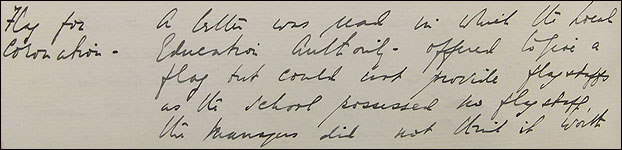 Flag for
Coronation -
A letter was read in which the Local
Education Authority - offered to give a
flag but could not provide flagstaffs
as the School possessed no flagstaff,
the managers did not think it worth